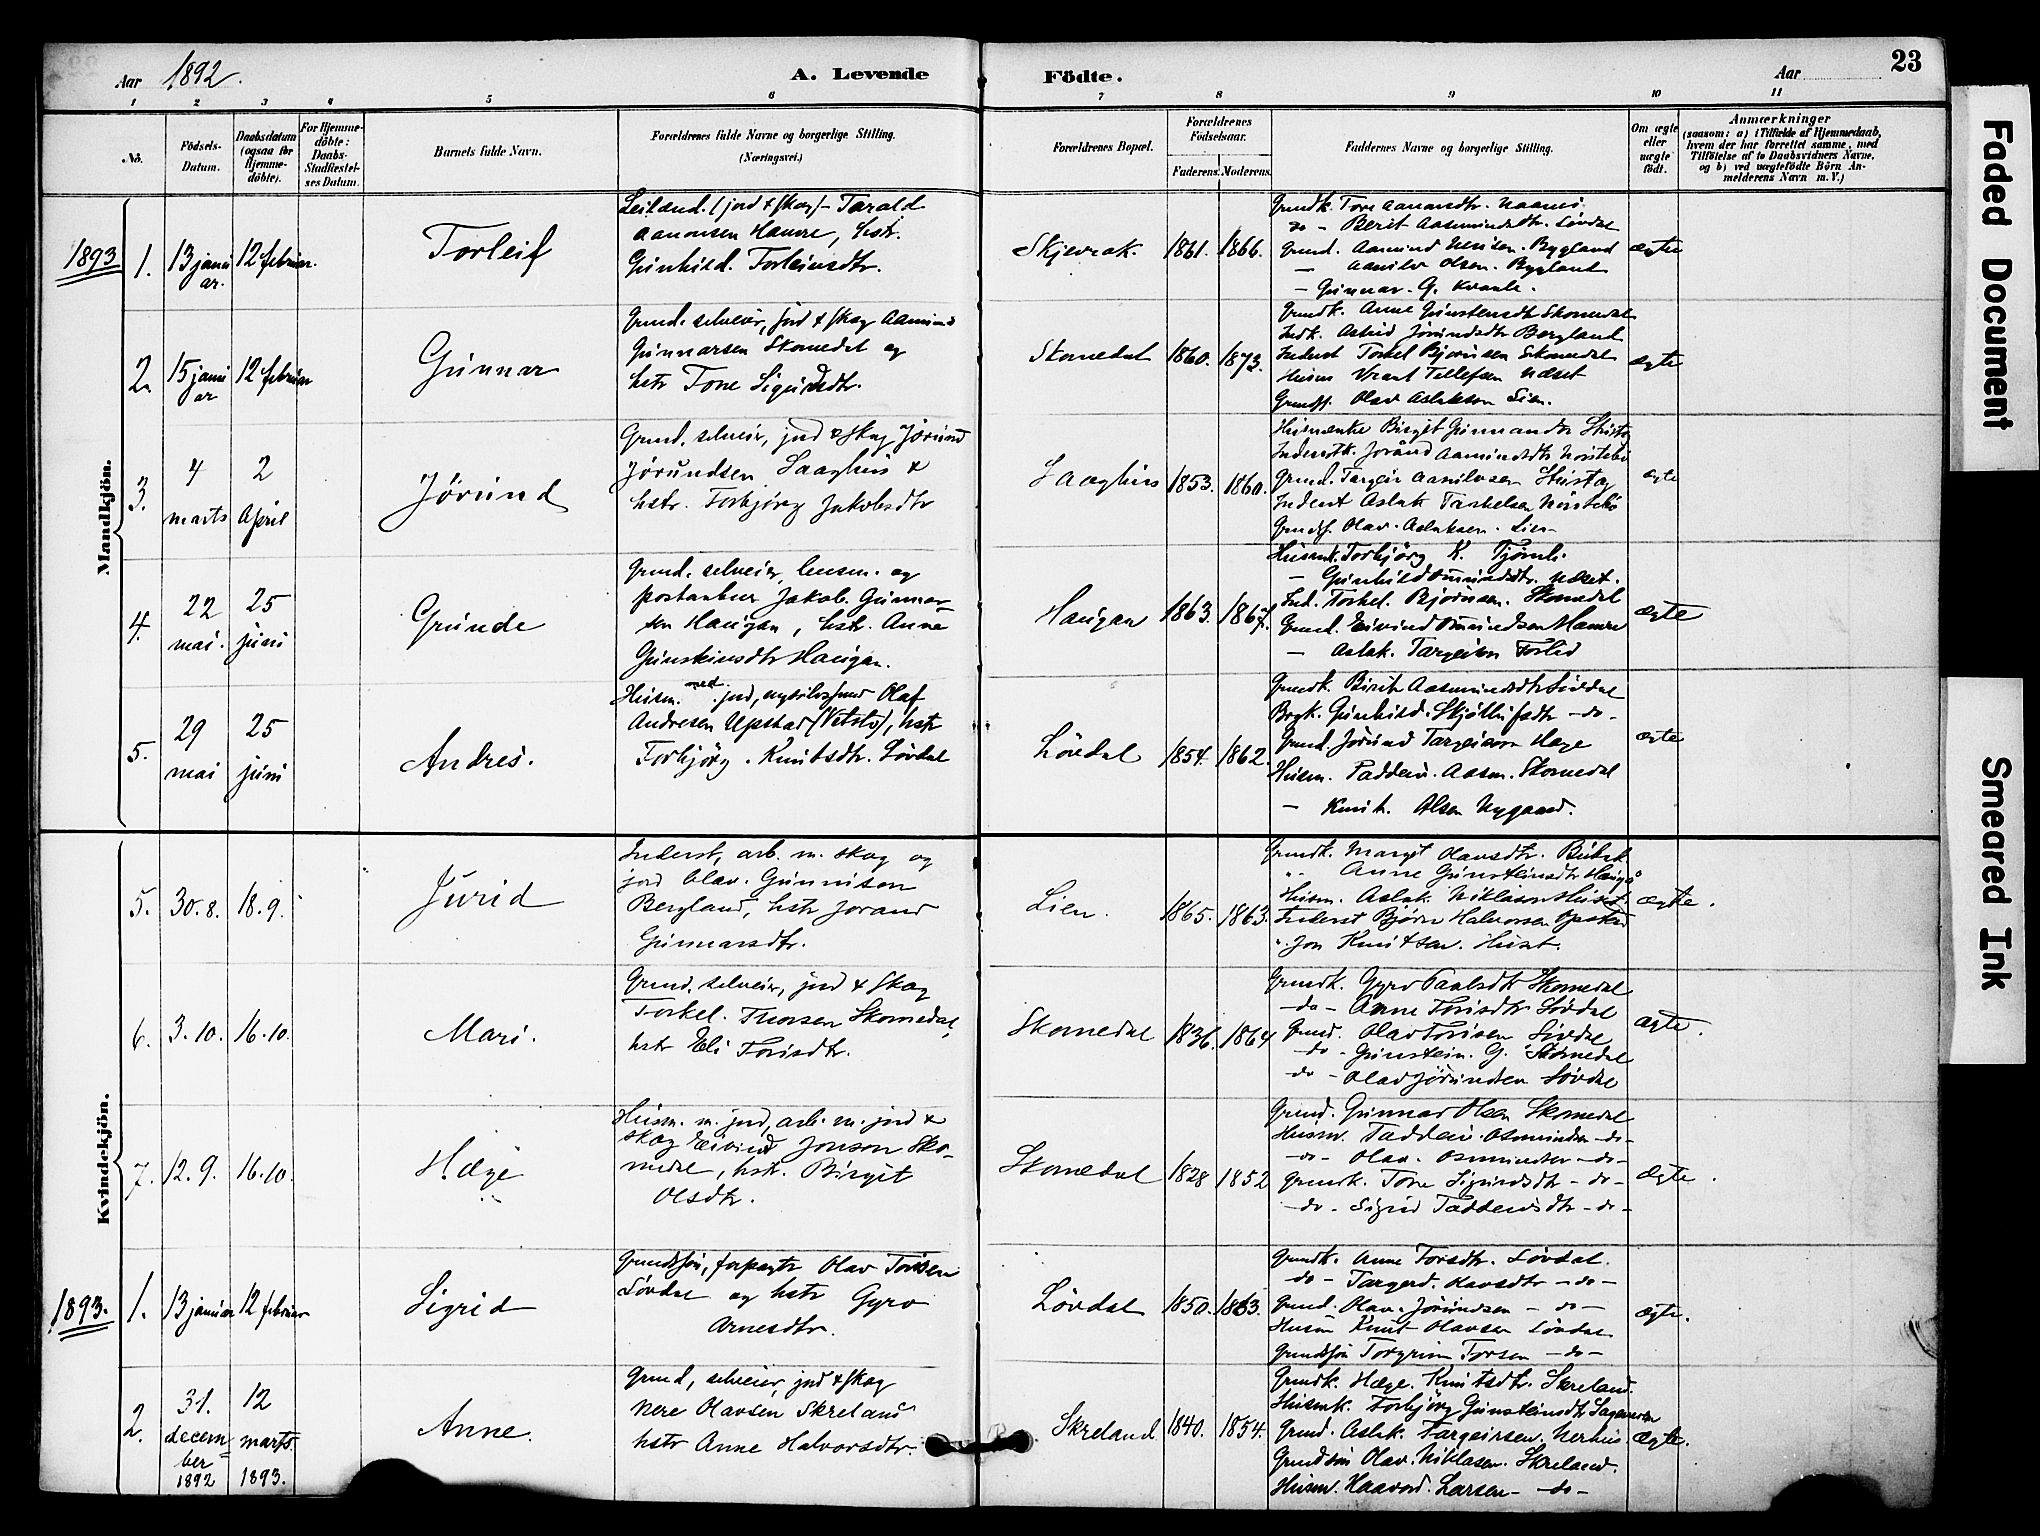 Aar 1892.
A. Levende Födte.
Aar
23
1 2 3 4 5 6 7 8 9 10 11
No.
Födsels-Datum.
Daabsdatum (ogsaa for Hjemme-döbte).
For Hjemme-döbte: Daabs-Stadfæstel-ses Datum.
Barnets fulde Navn.
Forældrenes fulde Navne og borgerlige Stilling. (Næringsvei.)
Forældrenes Bopæl.
Forældrenes Födselsaar.
Faderens. Moderens.
Faddernes Navne og borgerlige Stilling.
Om ægte eller uægte födt.
Anmærkninger
(saasom: a) i Tilfælde af Hjemmedaab, hvem der har forrettet samme, med Tilföielse af to Daabsvidners Navne, og b) ved uægtefödte Börn An-melderens Navn m. V.)
Mandkjön.
1893
1. 13 januar. 12 februar.
Torleif
Leilænd. (jord & skog) Tarald
Aanonsen Hamre, hstr.
Gunhild. Torleivsdtr.
Skjevrak. 1861. 1866.
Berit Aasmundsdtr. Lövdal
Bygland
Aanilv Olsen. Bygland
– Gunnar. G. Kvaale.
ægte
2. 15 januar 12 februar
Gunnar
Grund. selveier, jord & skog Aamund
Gunnarsen Skomedal og
hstr Tone Sigurdsdtr.
Skomedal 1860. 1873.
Grundk. Anne Gunsteinsdtr Skomedal
Indk. Astrid Jörundsdtr Bergland
Inderst Torkel Bjornsen Skomedal
Husm Vraal Tellefsen Næset
Grundss. Olav Aslaksen Lien.
ægte
3. 4 marts 2 April
Jörund
Grund. selveier, jord & skog Jörund
Jörundsen Laaghus &
hstr. Torbjörg Jakobsdtr
Laaghus 1853. 1860.
Grundss. Olav. Aslaksen. Lien
ægte
4. 22 mai. 25 juni
Grunde
Grund. selveier, lensm. og
postaabner Jakob. Gunnar-
sen Haugan, hstr. Anne
Gunsteinsdtr Haugan.
Haugan 1863. 1867.
Husmk. Torbjörg K. Tjömli.
– Gunhild Omundsdtr. Næset.
Ind. Torkel. Bjornsen. Skomedal
Grund. Eivind Omundsen Hamre
– Aslak. Targeisen
ægte
5. 29 mai 25 juni
Andres.
Husm. med jord, Olaf
Andresen Upstad, hstr
Torbjörg. Knutsdtr. Lövdal
Lövdal 1854. 1862.
Grundk. Birit Aasmundsdtr Lövdal
Grund. Jörund Targeisen Hage
Husm. Paddeiv. Aasm. Skomedal
– Knut. Olsen Nygaard.
ægte
Kvindekjön.
5. 30.8. 18.9.
Jurid
Inderst, arb. m. skog og
jord Olav. Gunnisen
Bergland, hstr Jorand
Gunnarsdtr.
Lien. 1865. 1863.
Grundk. Margit Olavsdtr.
" Anne Gunsteinsdtr
Husm. Aslak. Niklason Huset
Inderst Bjørn Halvorsen
" Jon Knutsen. Huset.
ægte.
6. 3.10. 16.10.
Mari.
Grund. selveier, jord & skog
Torkel. Thorsen Skomedal,
hstr Eli Torisdtr.
Skomedal 1836. 1864
Grundk. Gyro Paalsdtr Skomedal
–do– Anne Torisdtr Lövdal
Grund. Olav Torisen Lövdal
–do– Gunstein. G. Skomedal
–do– Olav Jörundsen Lövdal
ægte.
7. 12.9. 16.10.
Hæge
Husm. m. jord, arb. m. jord &
skog Eivind Jonson Sko-
medal, hstr. Birgit
Olsdtr.
Skomedal 1828 1852
Grund. Gunnar Olsen Skomedal
Husm. Taddeiv. Osmundsen –do–
–do– Olav. Osmundsen –do–
Grundk. Tone Sigurdsdtr –do–
–do– Sigrid Taddeivsdtr –do–
Ægte.
1893.
1. 13 januar 12 februar
Sigrid
Grundssön, forpagtr Olav Torisen
Lövdal og hstr Gyro
Arnesdtr.
Lövdal 1850. 1863.
Grundk. Anne Torsdtr. Lövdal.
–do– Targerd. Kavsdtr –do–
Grund. Olav. Jörundsen –do–
Husm Knut Olavsen Lövdal
Grundssön Torgrim Torsen –do–
ægte.
2. 31. december 1892 12 marts 1893.
Anne.
Grund, selveier, jord & skog
Nere Olavsen Skreland
hstr Anne Halvorsdtr.
Skreland 1840. 1854.
Grundk. Hæge. Knutsdtr. Skreland.
Husmk. Torbjörg Gunsteinsdtr
Grund. Aslak. Targeirsen. Nerhus.
Grundssön Olav. Niklasen. Skreland.
Husm. Haavord. Larsen –do–
ægte.
Faded Document
Smeared Ink